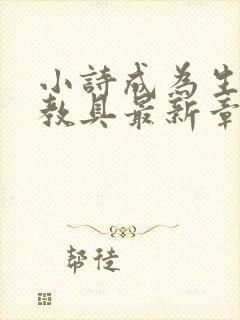 小詩成為生
教具最新章
帮徒